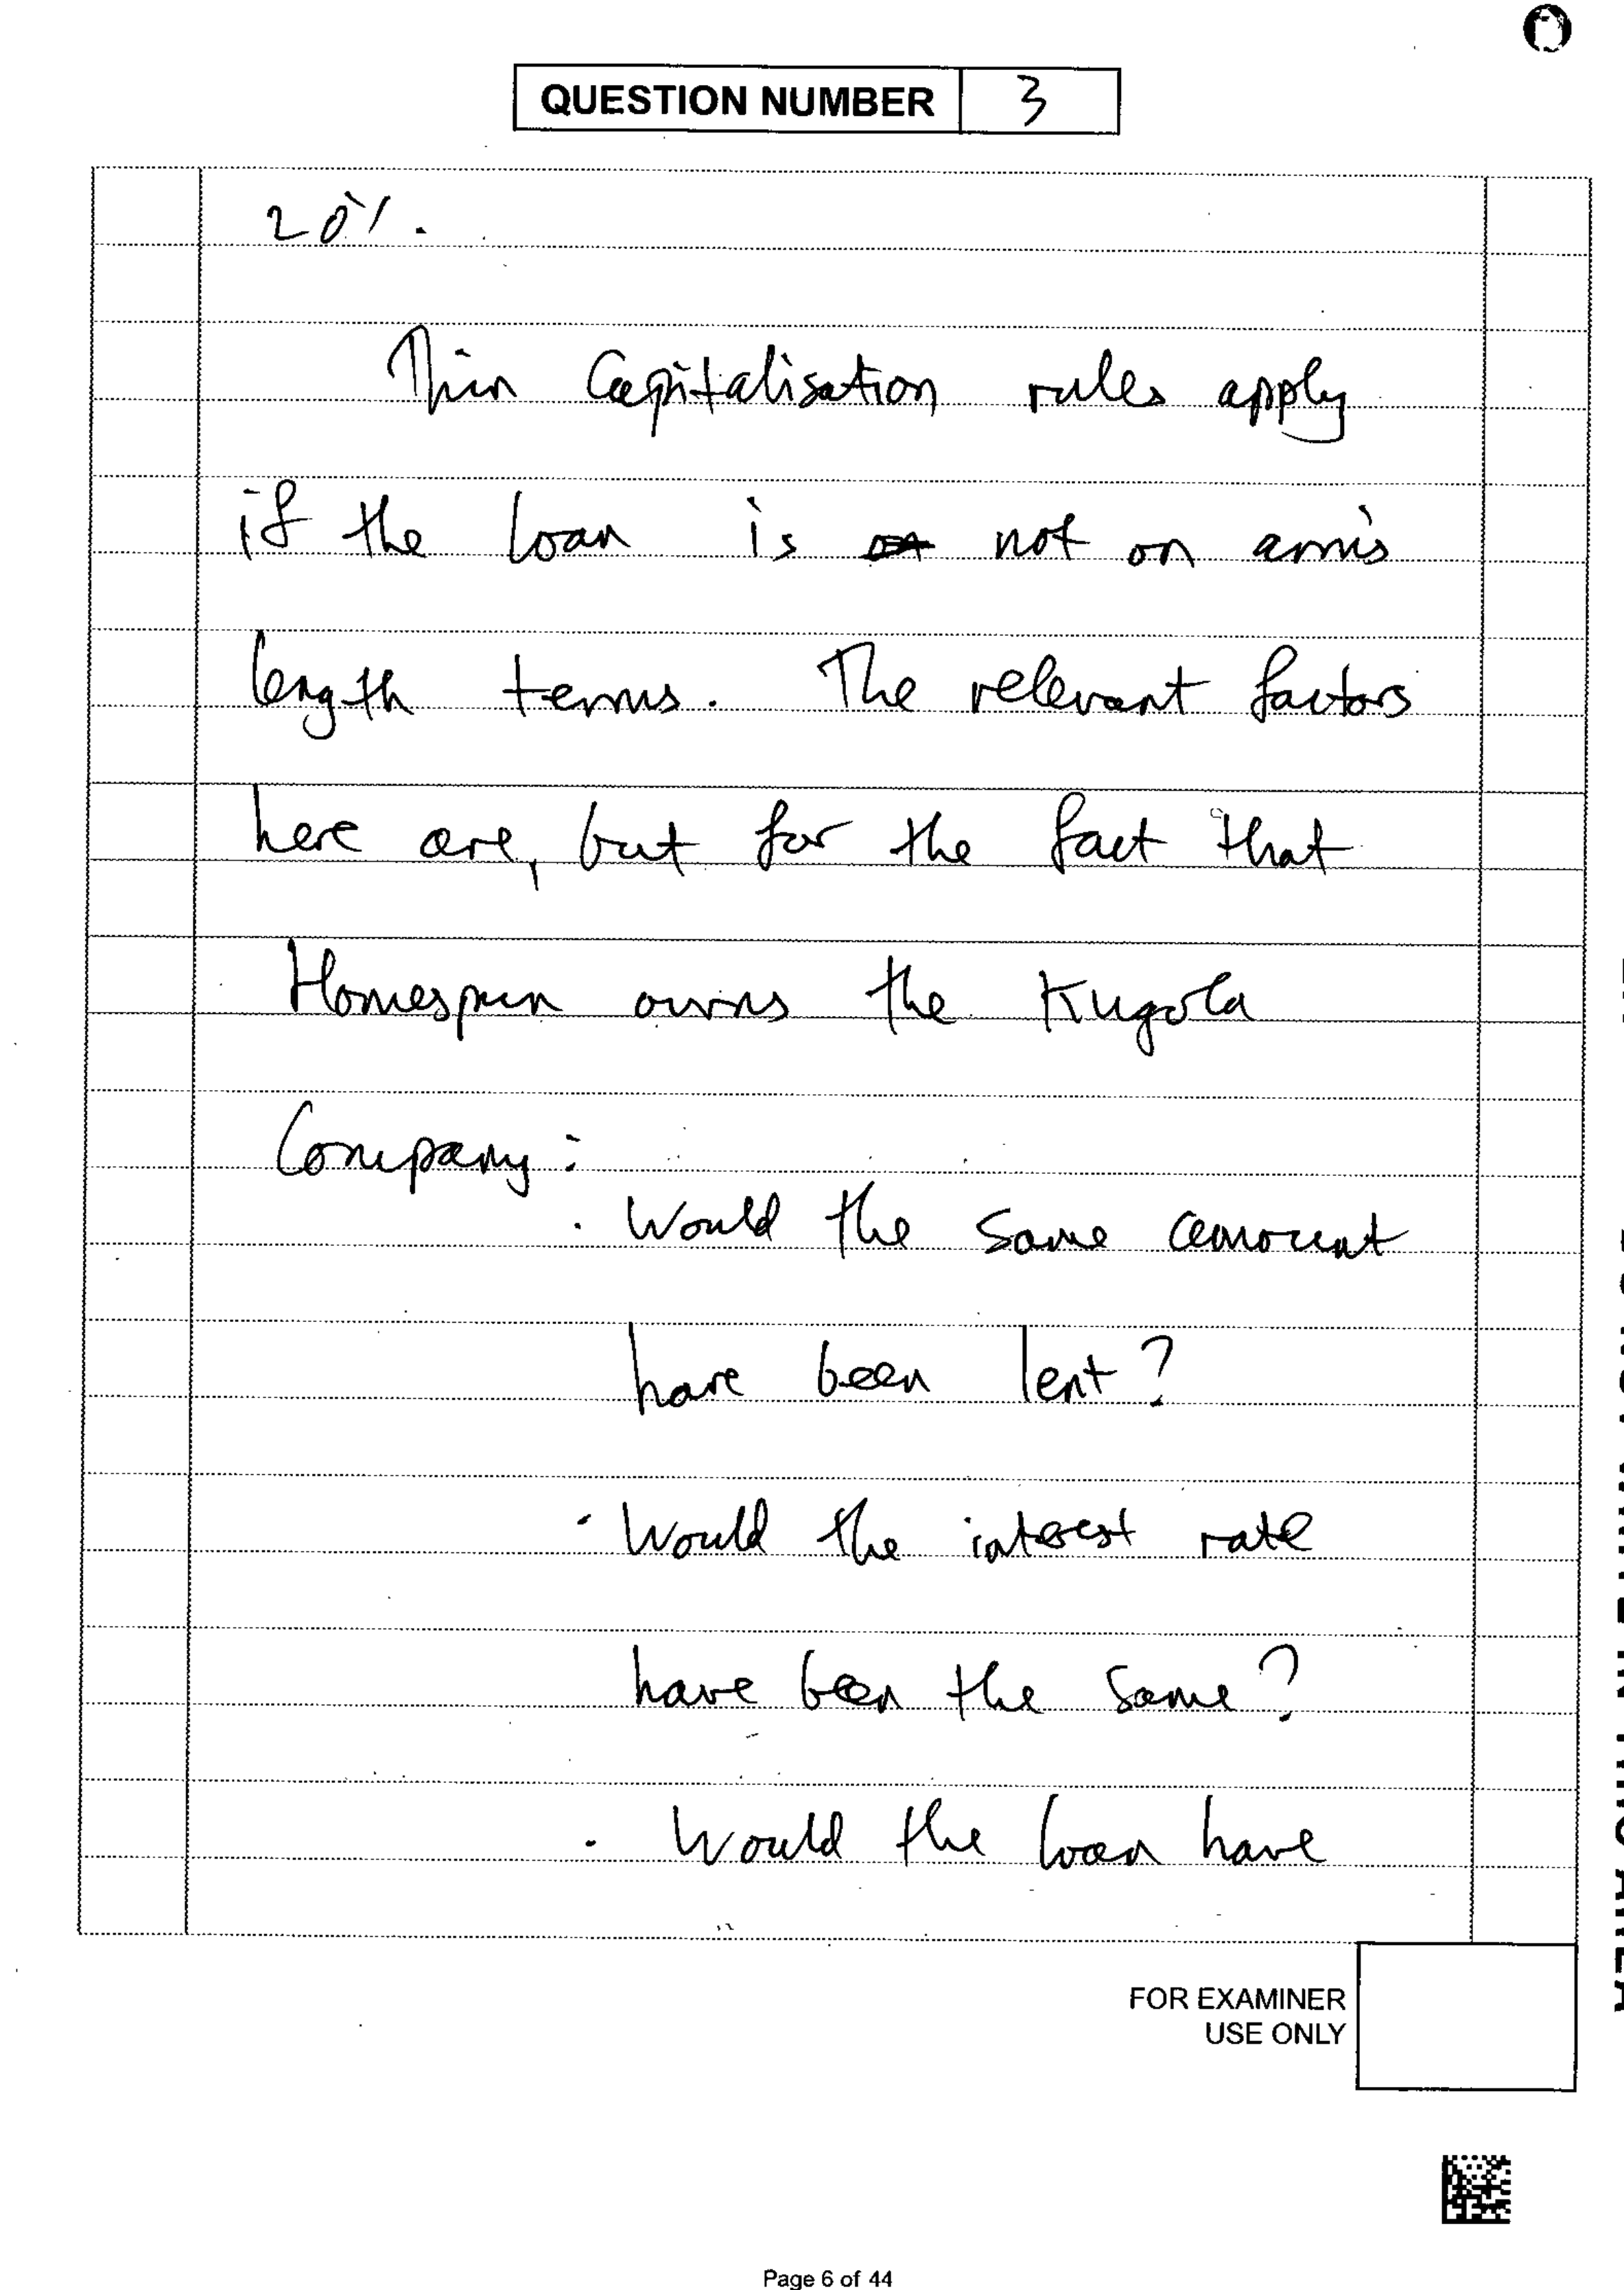 QUESTION NUMBER 3
20%.
Thin Capitalisation rules apply
if the loan is not on arm's
length terms. The relevant factors
here are, but for the fact that
Homespun owns the Kugola
Company:
· Would the same amount
have been lent?
· Would the interest rate
have been the same?
· Would the loan have
FOR EXAMINER
USE ONLY
Page 6 of 44